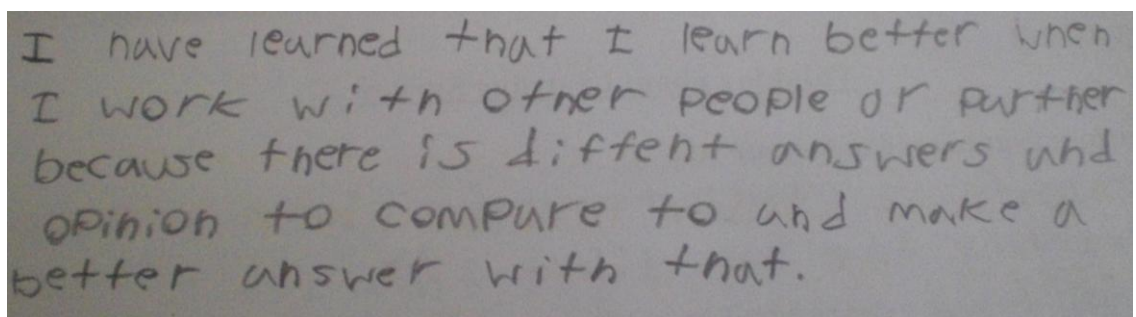 I have learned that I learn better when
I work with other people or partner
because there is diffent answers and
opinion to compare to and make a
better answer with that.